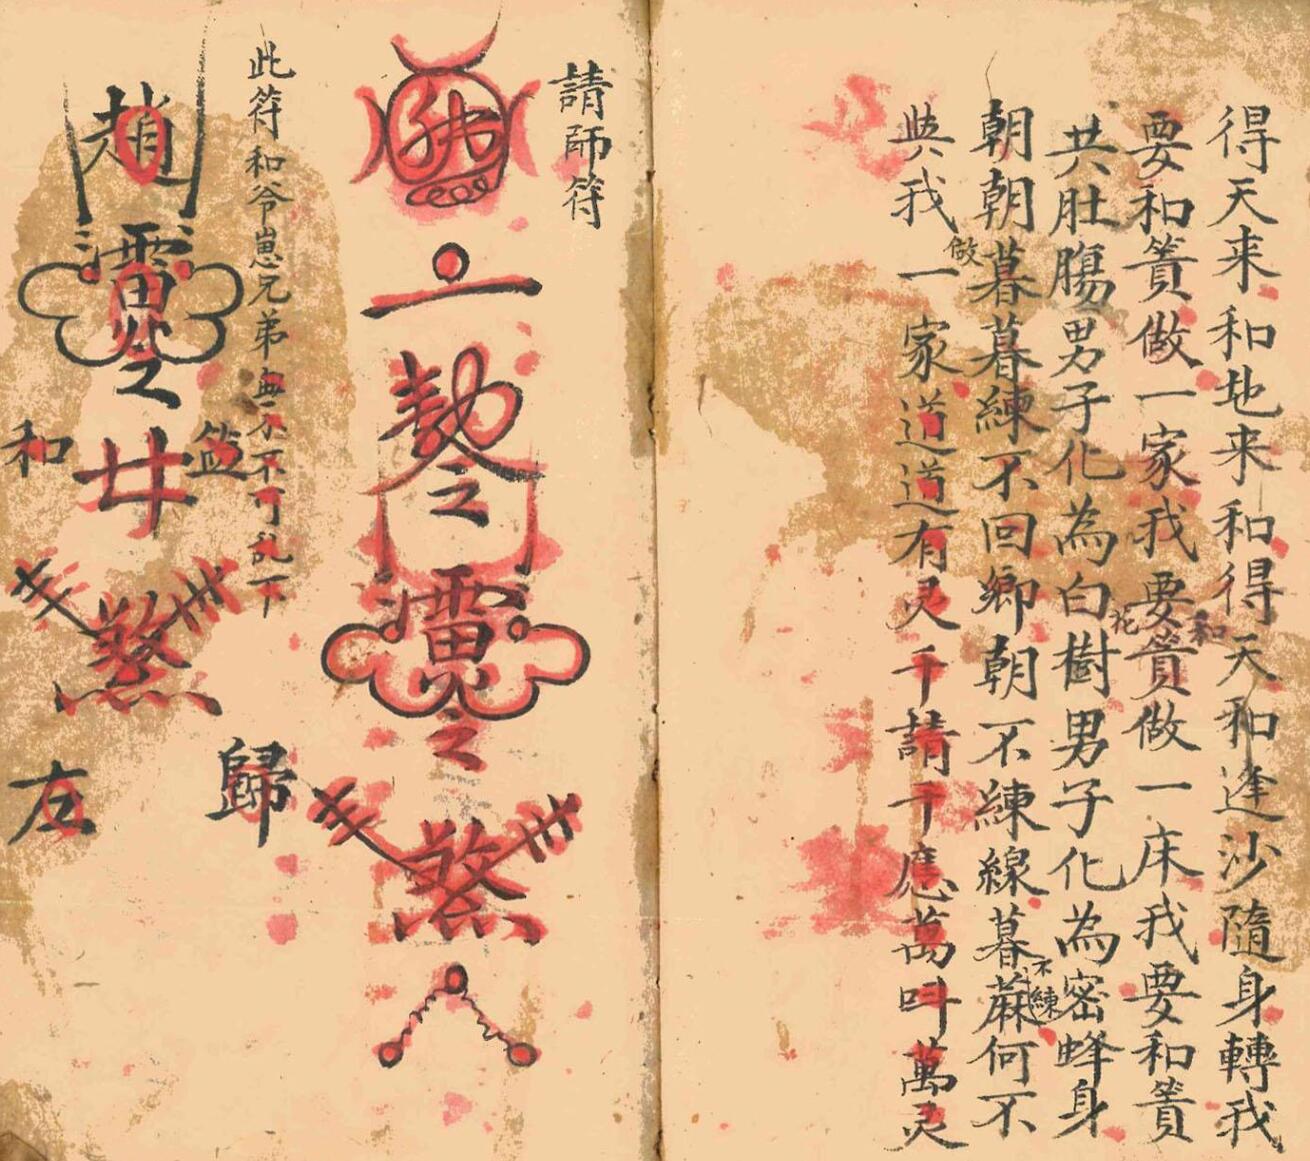 得天来和地来和得天和逢沙隨身轉我
要和簀做一家我要簀做一床我要和簀
和
共肚腸男子化為白樹男子化為密蜂身
花
朝朝暮暮練不回鄉朝不練線暮蔴何不
不練
與我一家道道有灵千請千應萬叫萬灵
做
請師符
此符和爷崽兄弟無不不可乱下
趙
和
煞
左
歸
煞